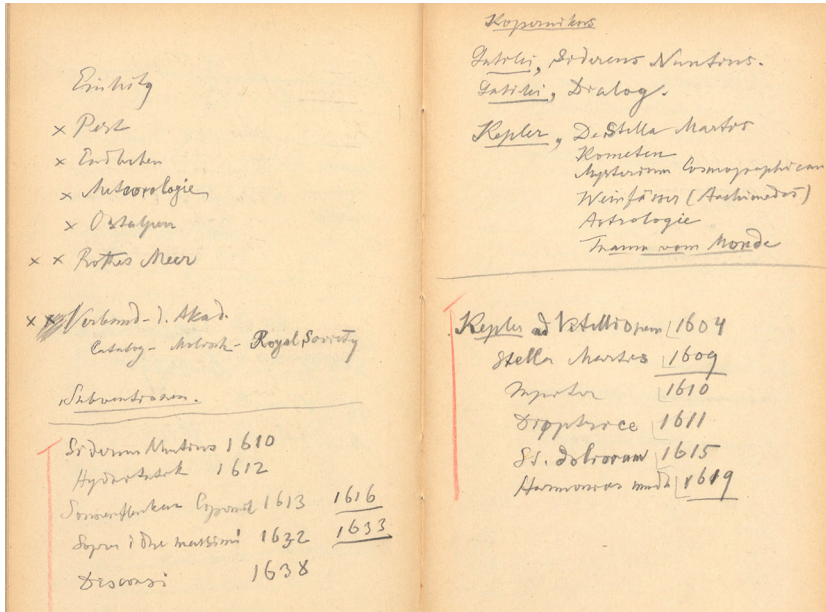 Einleitg
× Pest
× Erdbeben
× Meteorologie
× Ostalpen
× × Rothes Meer
× × Verband d. Akad.
Catalog - Moloch - Royal Society
Subventionen.
Sidereus Nuntius 1610
Hydrostatik 1612
Sonnenflecken Copernik 1613 1616
Sopra i due massimi 1632 1633
Discorsi 1638
Kopernikus
Galilei, Sidereus Nuntius.
Galilei, Dialog.
Kepler, De Stella Martis
Kometen
Mysterium Cosmographicum
Weinfässer (Archimedes)
Astrologie
Traum vom Monde
Kepler ad Vitellionem 1604
Stella Martis 1609
1610
Dioptrice 1611
St. doliorum 1615
Harmonices mundi 1619